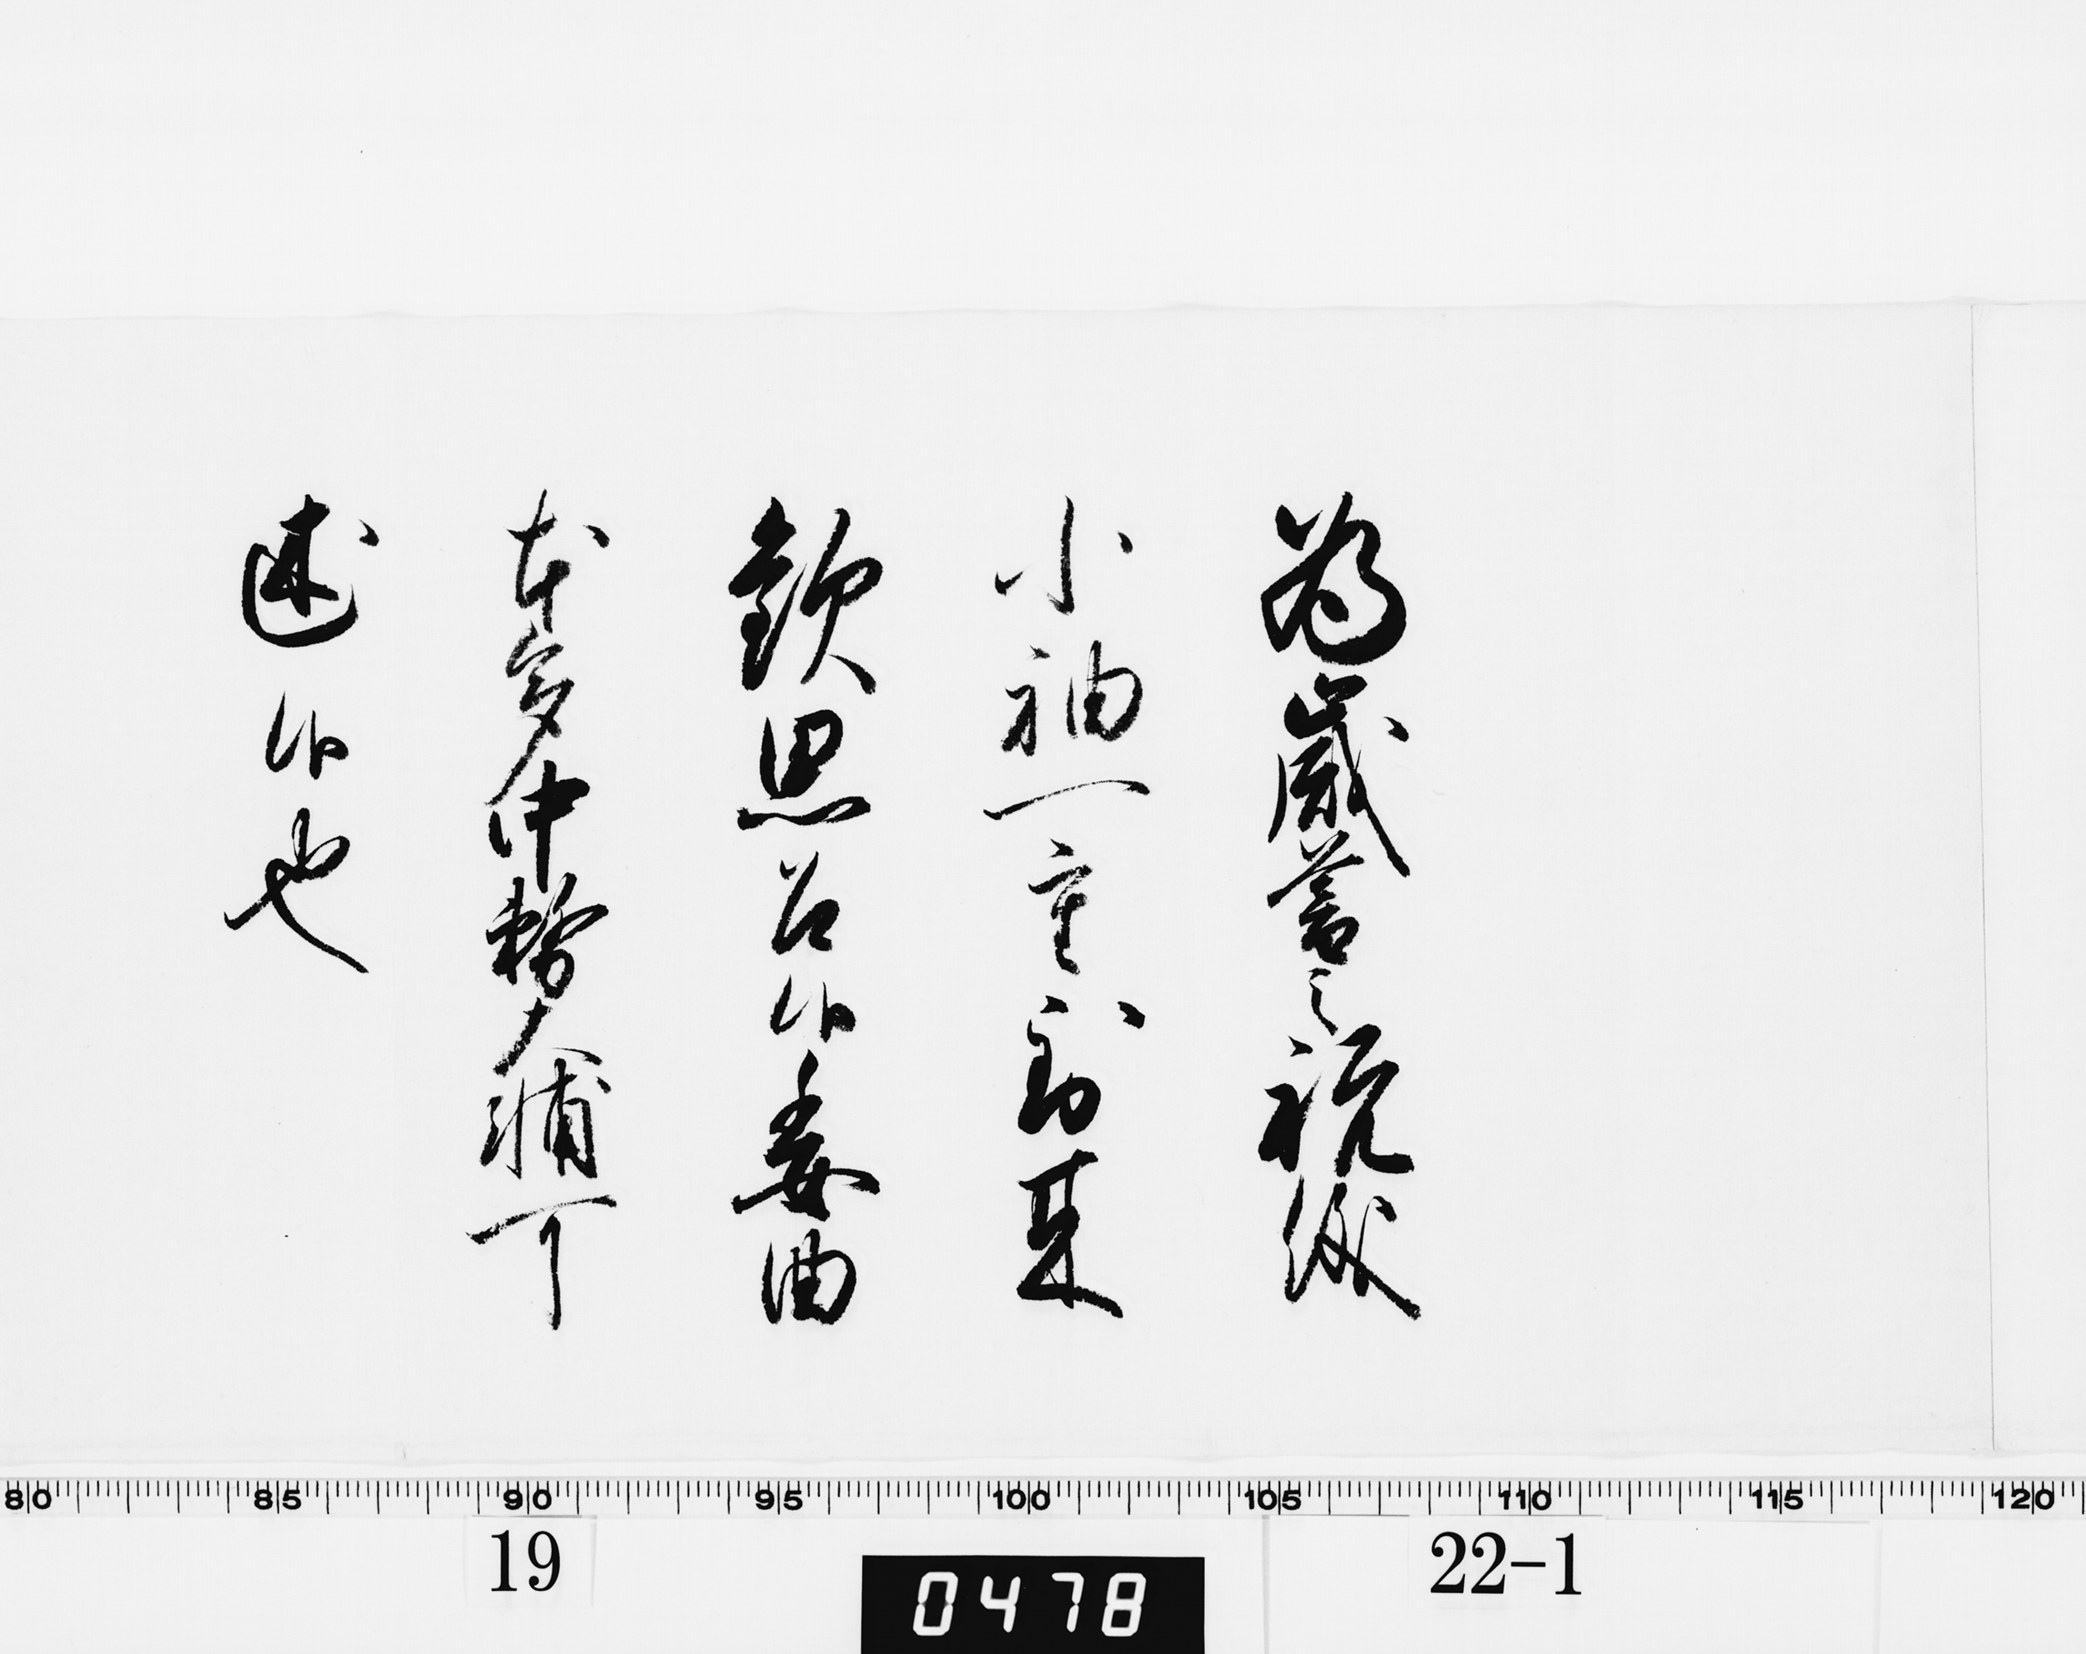 為歳暮之祝儀
小袖一重到来
歓思召候委曲
本多中務大輔可
述候也
80 85 90 95 100 105 110 115 120
19 0478 22-1